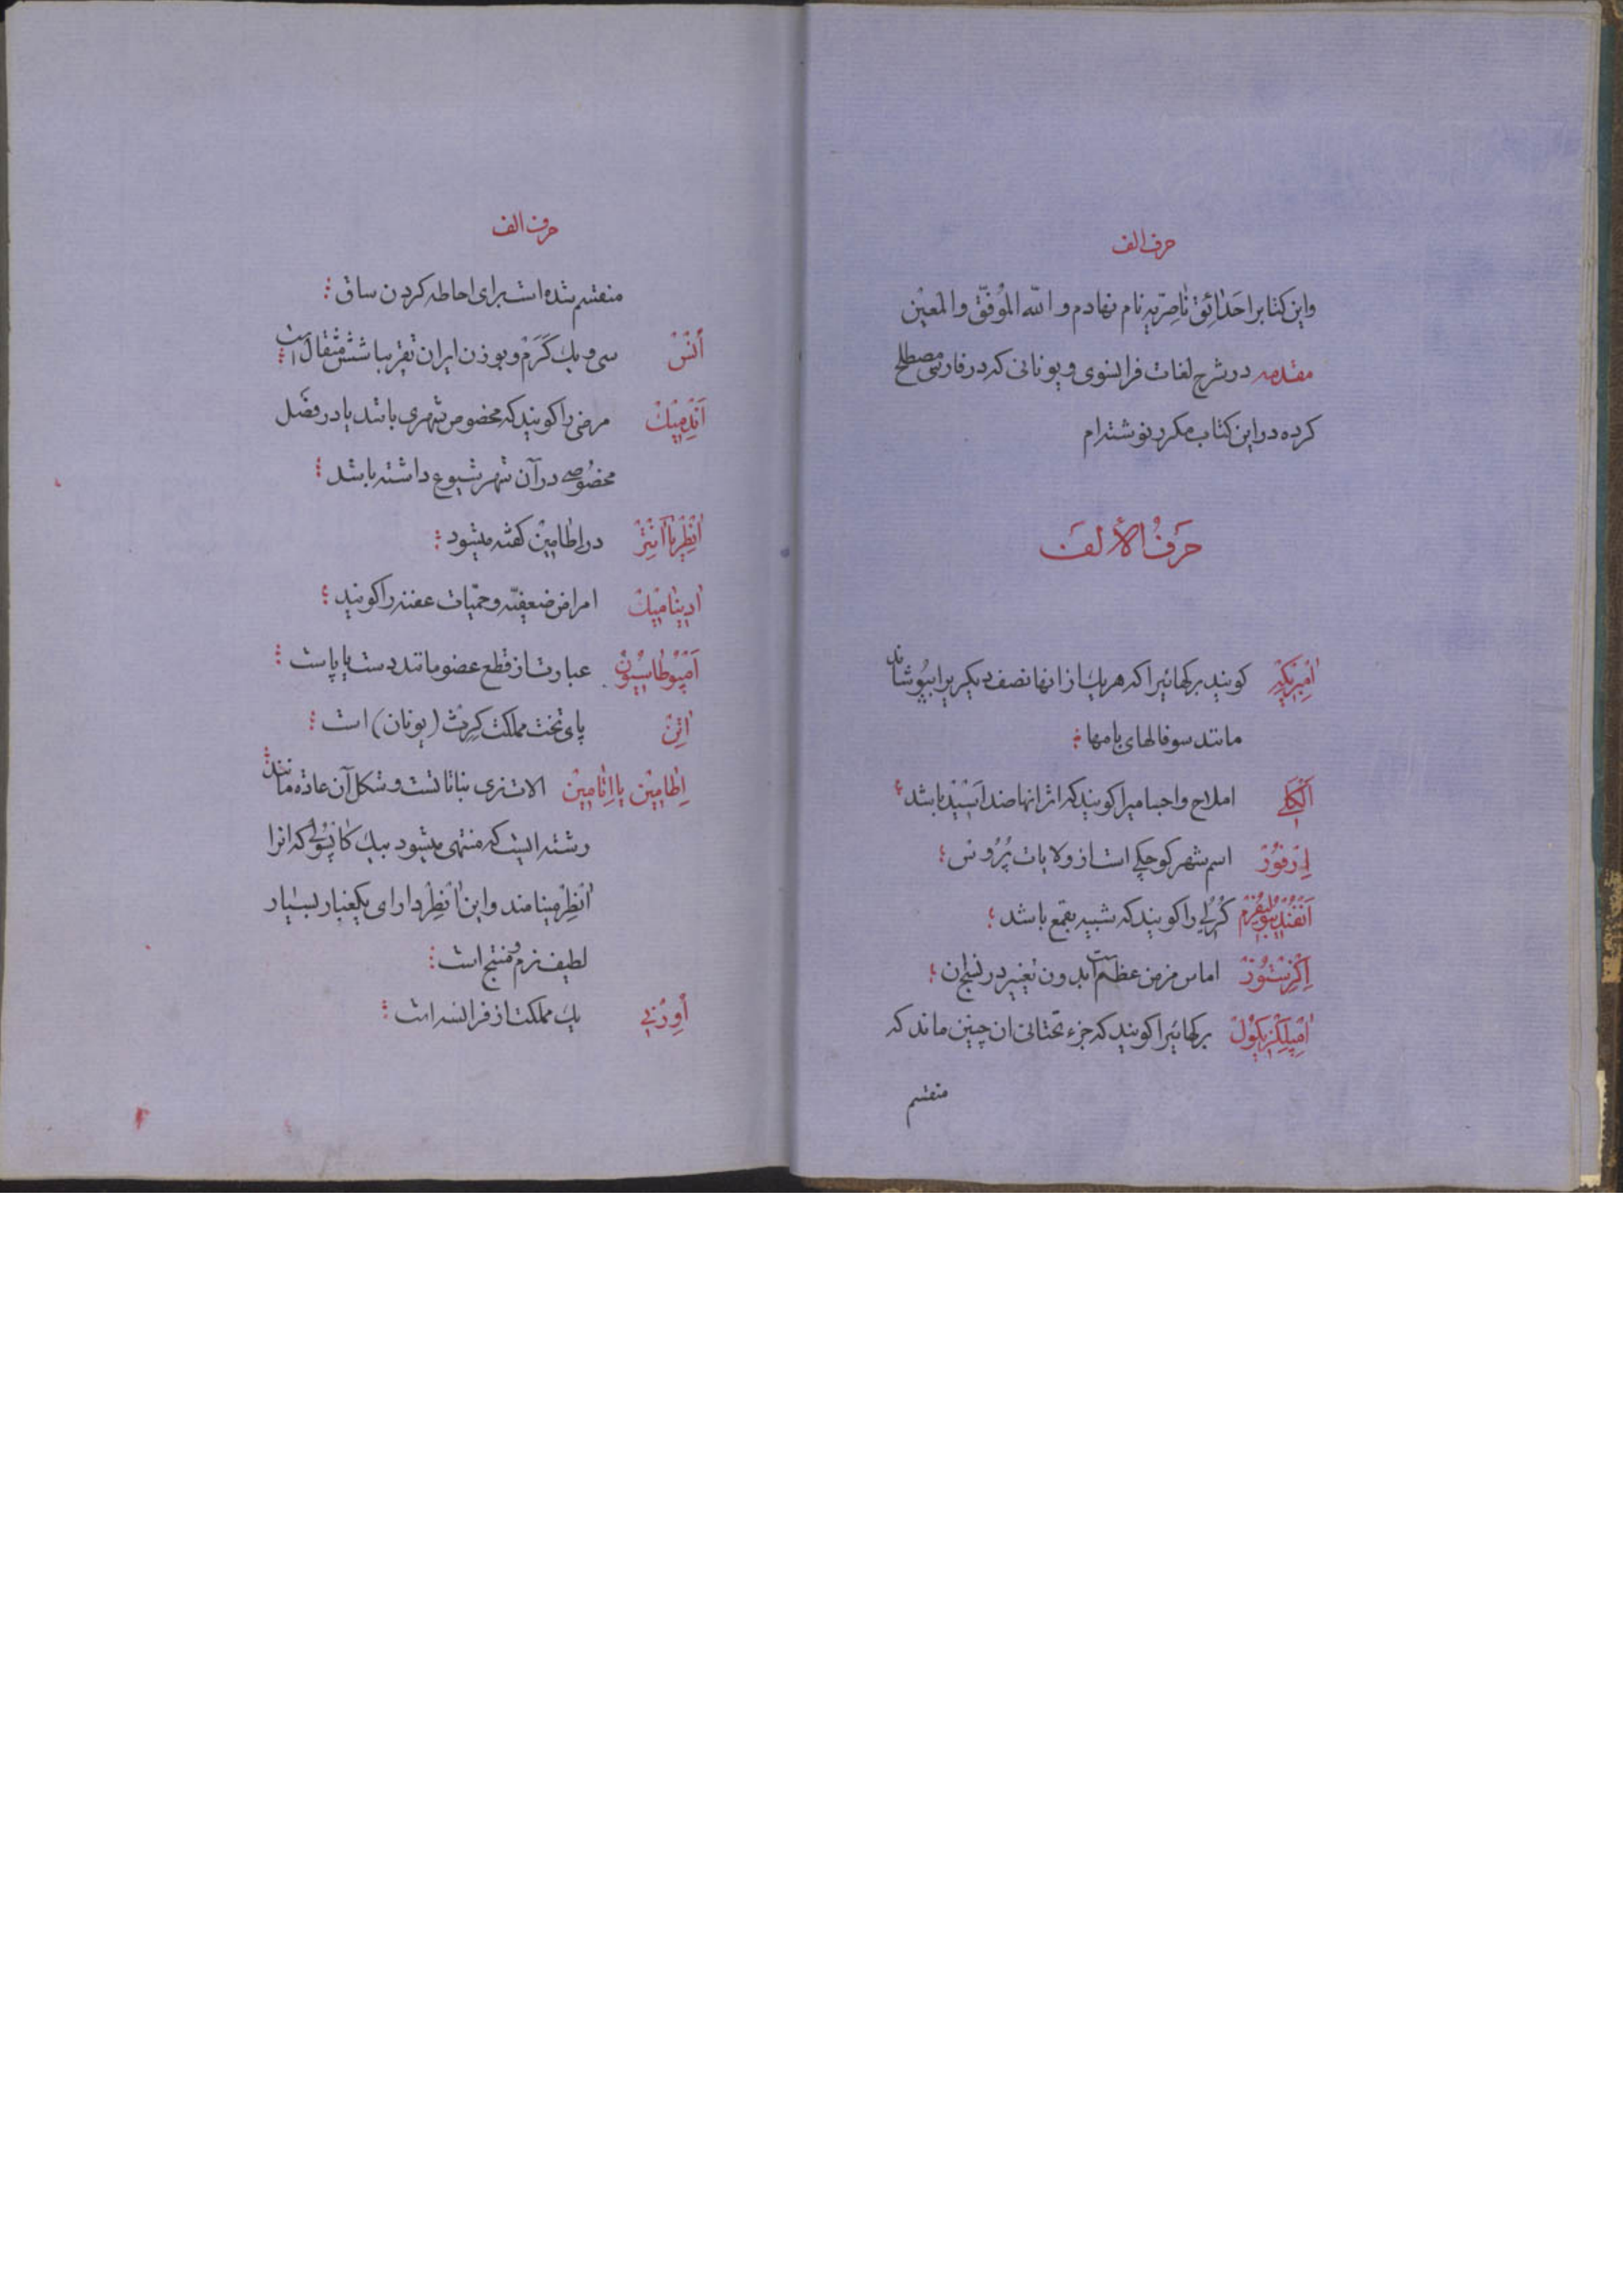 حرف الف
واین کتابرا حَدٰائِق نٰاصِرّیه نام نهادم و الله المُوفّق والمعین
مقدمه در شرح لغات فرانسوی و یونانی که در فارسی مصطلح
کرده در این کتاب مکرر نوشته‌ام
حَرفُ الألفَ
اَمِبْریکِه کویند برکهائیرا که هر یك از انها نصف دیکریرا بپُوشاند
مانند سوفالهای بامها
اَلْکٰالی املاح و اجسامیرا کویند که اثر انها ضد اَسید باشد
اِرْفُورْ اسم شهر کوچکی است از ولایات پُرُوس
کُرُلی را کویند که شبیه بقمع باشد
اِکْزُسْتُوزْ اماس مزمن عظم است بدون تغییر در نسج ان
برکهائیرا کویند که جزء تحتانی ان چنین ماند که
منقسم
حرف الف
منقسم شده است برای احاطه کردن ساق
اُنْسْ سی و یك گرَمْ و بوزن ایران تقریبا شش مثقال است
اَنْدِمیكْ مرضی را کویند که مخصوص شهری باشد یا در فصل
مخصُوصی در آن شهر شیوع داشته باشد
اَنْطِرْ یا اَنْتِرْ در اِطامین کفته میشود
ادینٰامیكْ امراض ضعیفّه و حمّیات عفنه را کویند
اَمْپُوطٰاسْیُونْ عبارت از قطع عضو مانند دست یا پا است
اتِنْ پای تخت مملکت کرِث (یونان) است
اِطٰامینْ یا اِتٰامینْ الات نری نباتاتست و شکل آن عادة مانند
رشته ایست که منتهی میشود بیك کٰاپْسُولی که انرا
اَنْطِرْ مینامند و این اَنْطِرْ دارای یکغبار بسیار
لطیف نرم و منتج است
اُوِرْنی یك مملکت از فرانسه است